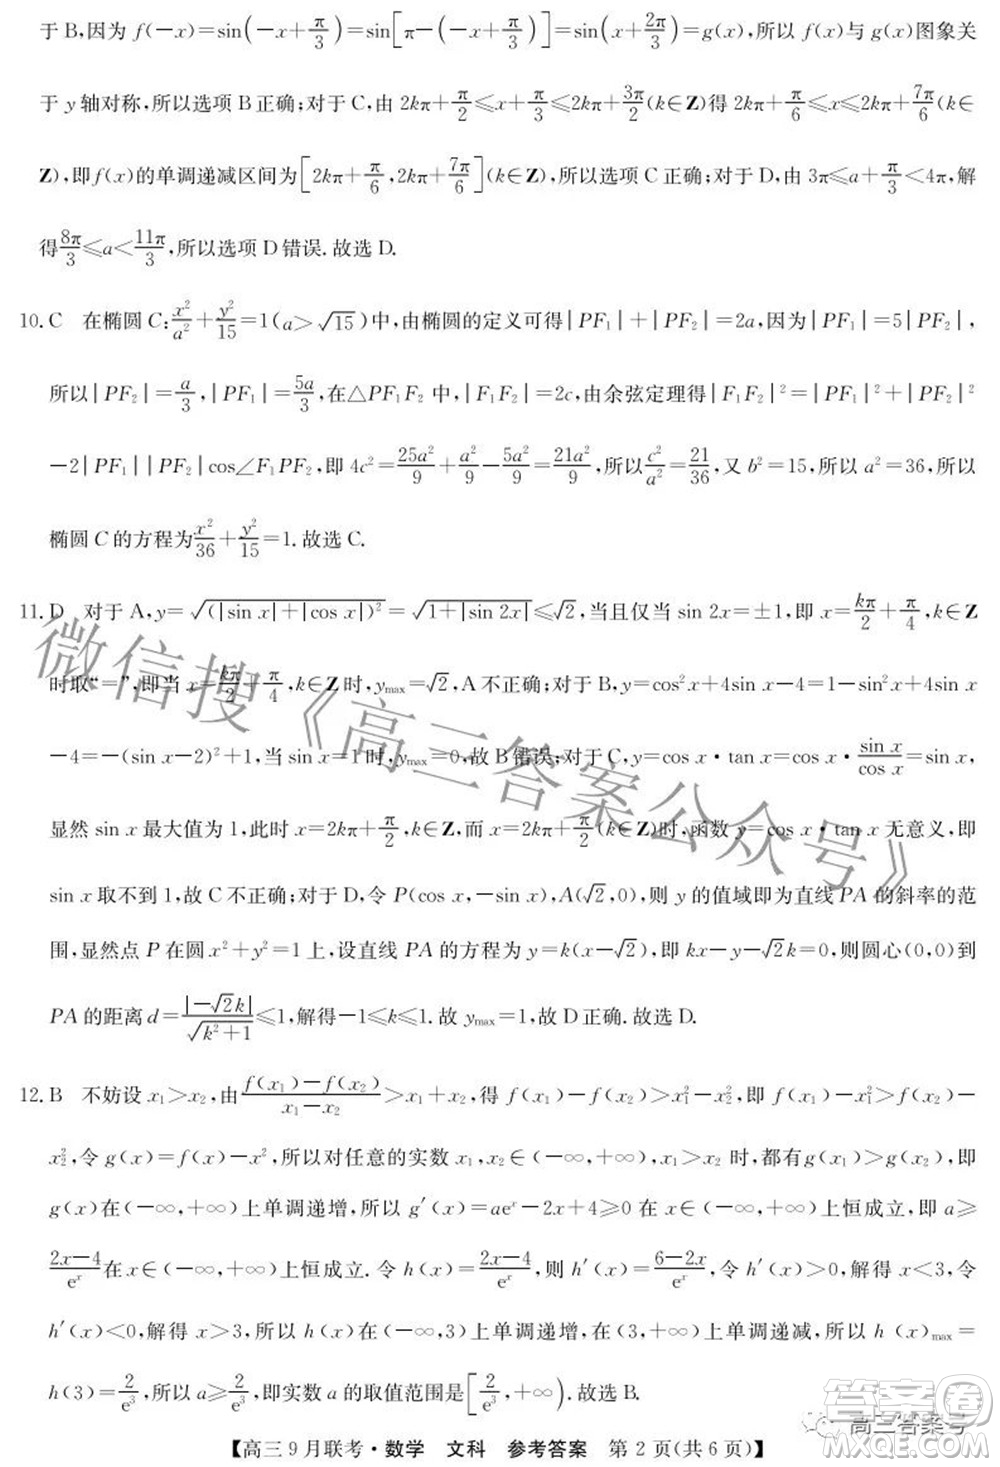 于 B,因为 f(−x)=sin(−x+π/3)=sin[π−(−x+π/3)]=sin(x+2π/3)=g(x),所以 f(x)与 g(x)图象关
于 y 轴对称,所以选项 B 正确;对于 C,由 2kπ+π/2≤x+π/3≤2kπ+3π/2(k∈Z)得 2kπ+π/6≤x≤2kπ+7π/6(k∈
Z),即 f(x)的单调递减区间为[2kπ+π/6,2kπ+7π/6](k∈Z),所以选项 C 正确;对于 D,由 3π≤a+π/3<4π,解
得8π/3≤a<11π/3,所以选项 D 错误.故选 D.
10. C 在椭圆 C:x²/a²+y²/15=1(a>√15)中,由椭圆的定义可得|PF₁|+|PF₂|=2a,因为|PF₁|=5|PF₂|,
所以|PF₂|=a/3,|PF₁|=5a/3,在△PF₁F₂ 中,|F₁F₂|=2c,由余弦定理得|F₁F₂|²=|PF₁|²+|PF₂|²
−2|PF₁||PF₂|cos∠F₁PF₂,即 4c²=25a²/9+a²/9−5a²/9=21a²/9,所以c²/a²=21/36,又 b²=15,所以 a²=36,所以
椭圆 C 的方程为x²/36+y²/15=1.故选 C.
11. D 对于 A,y=√(|sin x|+|cos x|)²=√1+|sin 2x|≤√2,当且仅当 sin 2x=±1,即 x=kπ/2+π/4,k∈Z
时取“=”,即当 x=kπ/2+π/4,k∈Z 时,yₘₐₓ=√2,A 不正确;对于 B,y=cos²x+4sin x−4=1−sin²x+4sin x
−4=−(sin x−2)²+1,当 sin x=1 时,yₘₐₓ=0,故 B 错误;对于 C,y=cos x·tan x=cos x·sin x/cos x=sin x,
显然 sin x 最大值为 1,此时 x=2kπ+π/2,k∈Z,而 x=2kπ+π/2(k∈Z)时,函数 y=cos x·tan x 无意义,即
sin x 取不到 1,故 C 不正确;对于 D,令 P(cos x,−sin x),A(√2,0),则 y 的值域即为直线 PA 的斜率的范
围,显然点 P 在圆 x²+y²=1 上,设直线 PA 的方程为 y=k(x−√2),即 kx−y−√2k=0,则圆心(0,0)到
PA 的距离 d=|−√2k|/√k²+1≤1,解得−1≤k≤1.故 yₘₐₓ=1,故 D 正确.故选 D.
12. B 不妨设 x₁>x₂,由f(x₁)−f(x₂)/x₁−x₂>x₁+x₂,得 f(x₁)−f(x₂)>x₁²−x₂²,即 f(x₁)−x₁²>f(x₂)−
x₂²,令 g(x)=f(x)−x²,所以对任意的实数 x₁,x₂∈(−∞,+∞),x₁>x₂ 时,都有g(x₁)>g(x₂),即
g(x)在(−∞,+∞)上单调递增,所以 g′(x)=aeˣ−2x+4≥0 在 x∈(−∞,+∞)上恒成立,即 a≥
2x−4/eˣ在 x∈(−∞,+∞)上恒成立.令 h(x)=2x−4/eˣ,则 h′(x)=6−2x/eˣ,令 h′(x)>0,解得 x<3,令
h′(x)<0,解得 x>3,所以 h(x)在(−∞,3)上单调递增,在(3,+∞)上单调递减,所以 h(x)ₘₐₓ=
h(3)=2/e³,所以 a≥2/e³,即实数 a 的取值范围是[2/e³,+∞).故选 B.
微信搜《高三答案公众号》
高三答案号
答案圈
MXQE.COM
【高三 9 月联考·数学 文科 参考答案 第 2 页(共 6 页)】